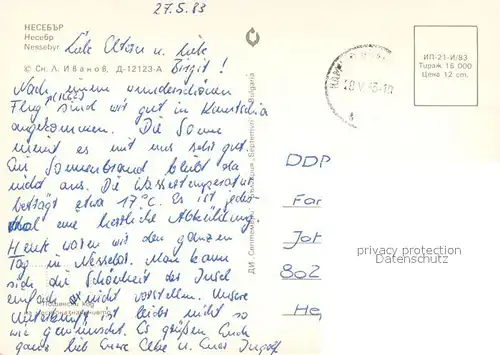 27.5.83
НЕСЕБЪР
Несебр
Nessebyr
Liebe Eltern u. liebe
Birgit!
© Сн. Л. Иванов, Д-12123-А
Nach einem wunderschönen
Flug sind wir gut in
angekommen. Die Sonne
meint es mit uns sehr gut.
Ein Sonnenbrand bleibt da
nicht aus. Die Wassertemperatur
beträgt etwa 17°C. Es ist jedes
mal eine herrliche Abkühlung!
Heute waren wir den ganzen
Tag in Nessebar. Man kann
sich die Schönheit der Insel
einfach nicht vorstellen. Unsere
Unterkunft ist leider nicht so
wie gewünscht. Es grüßen Euch
ganz lieb Eure u. Euer
Пощенски код
на местоназначението
ДИ „Септември" България „Septemvri" Bulgaria
ИП-21-И/83
Тираж 15 000
Цена 12 ст.
DDP
For
Jot
802
He,
privacy protection
Datenschutz